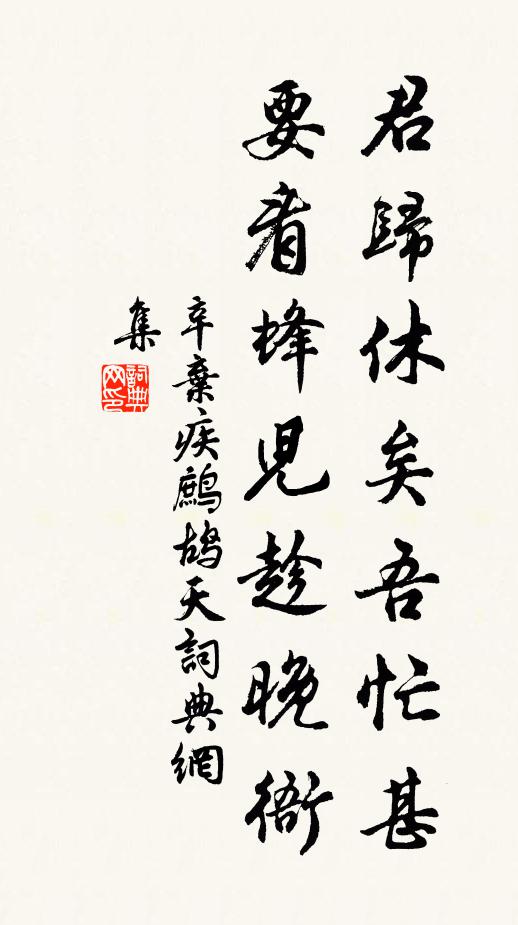 君歸休矣吾忙甚
要看蜂兒趁晚衙
辛棄疾鷓鴣天詞典網
集
詞典網印